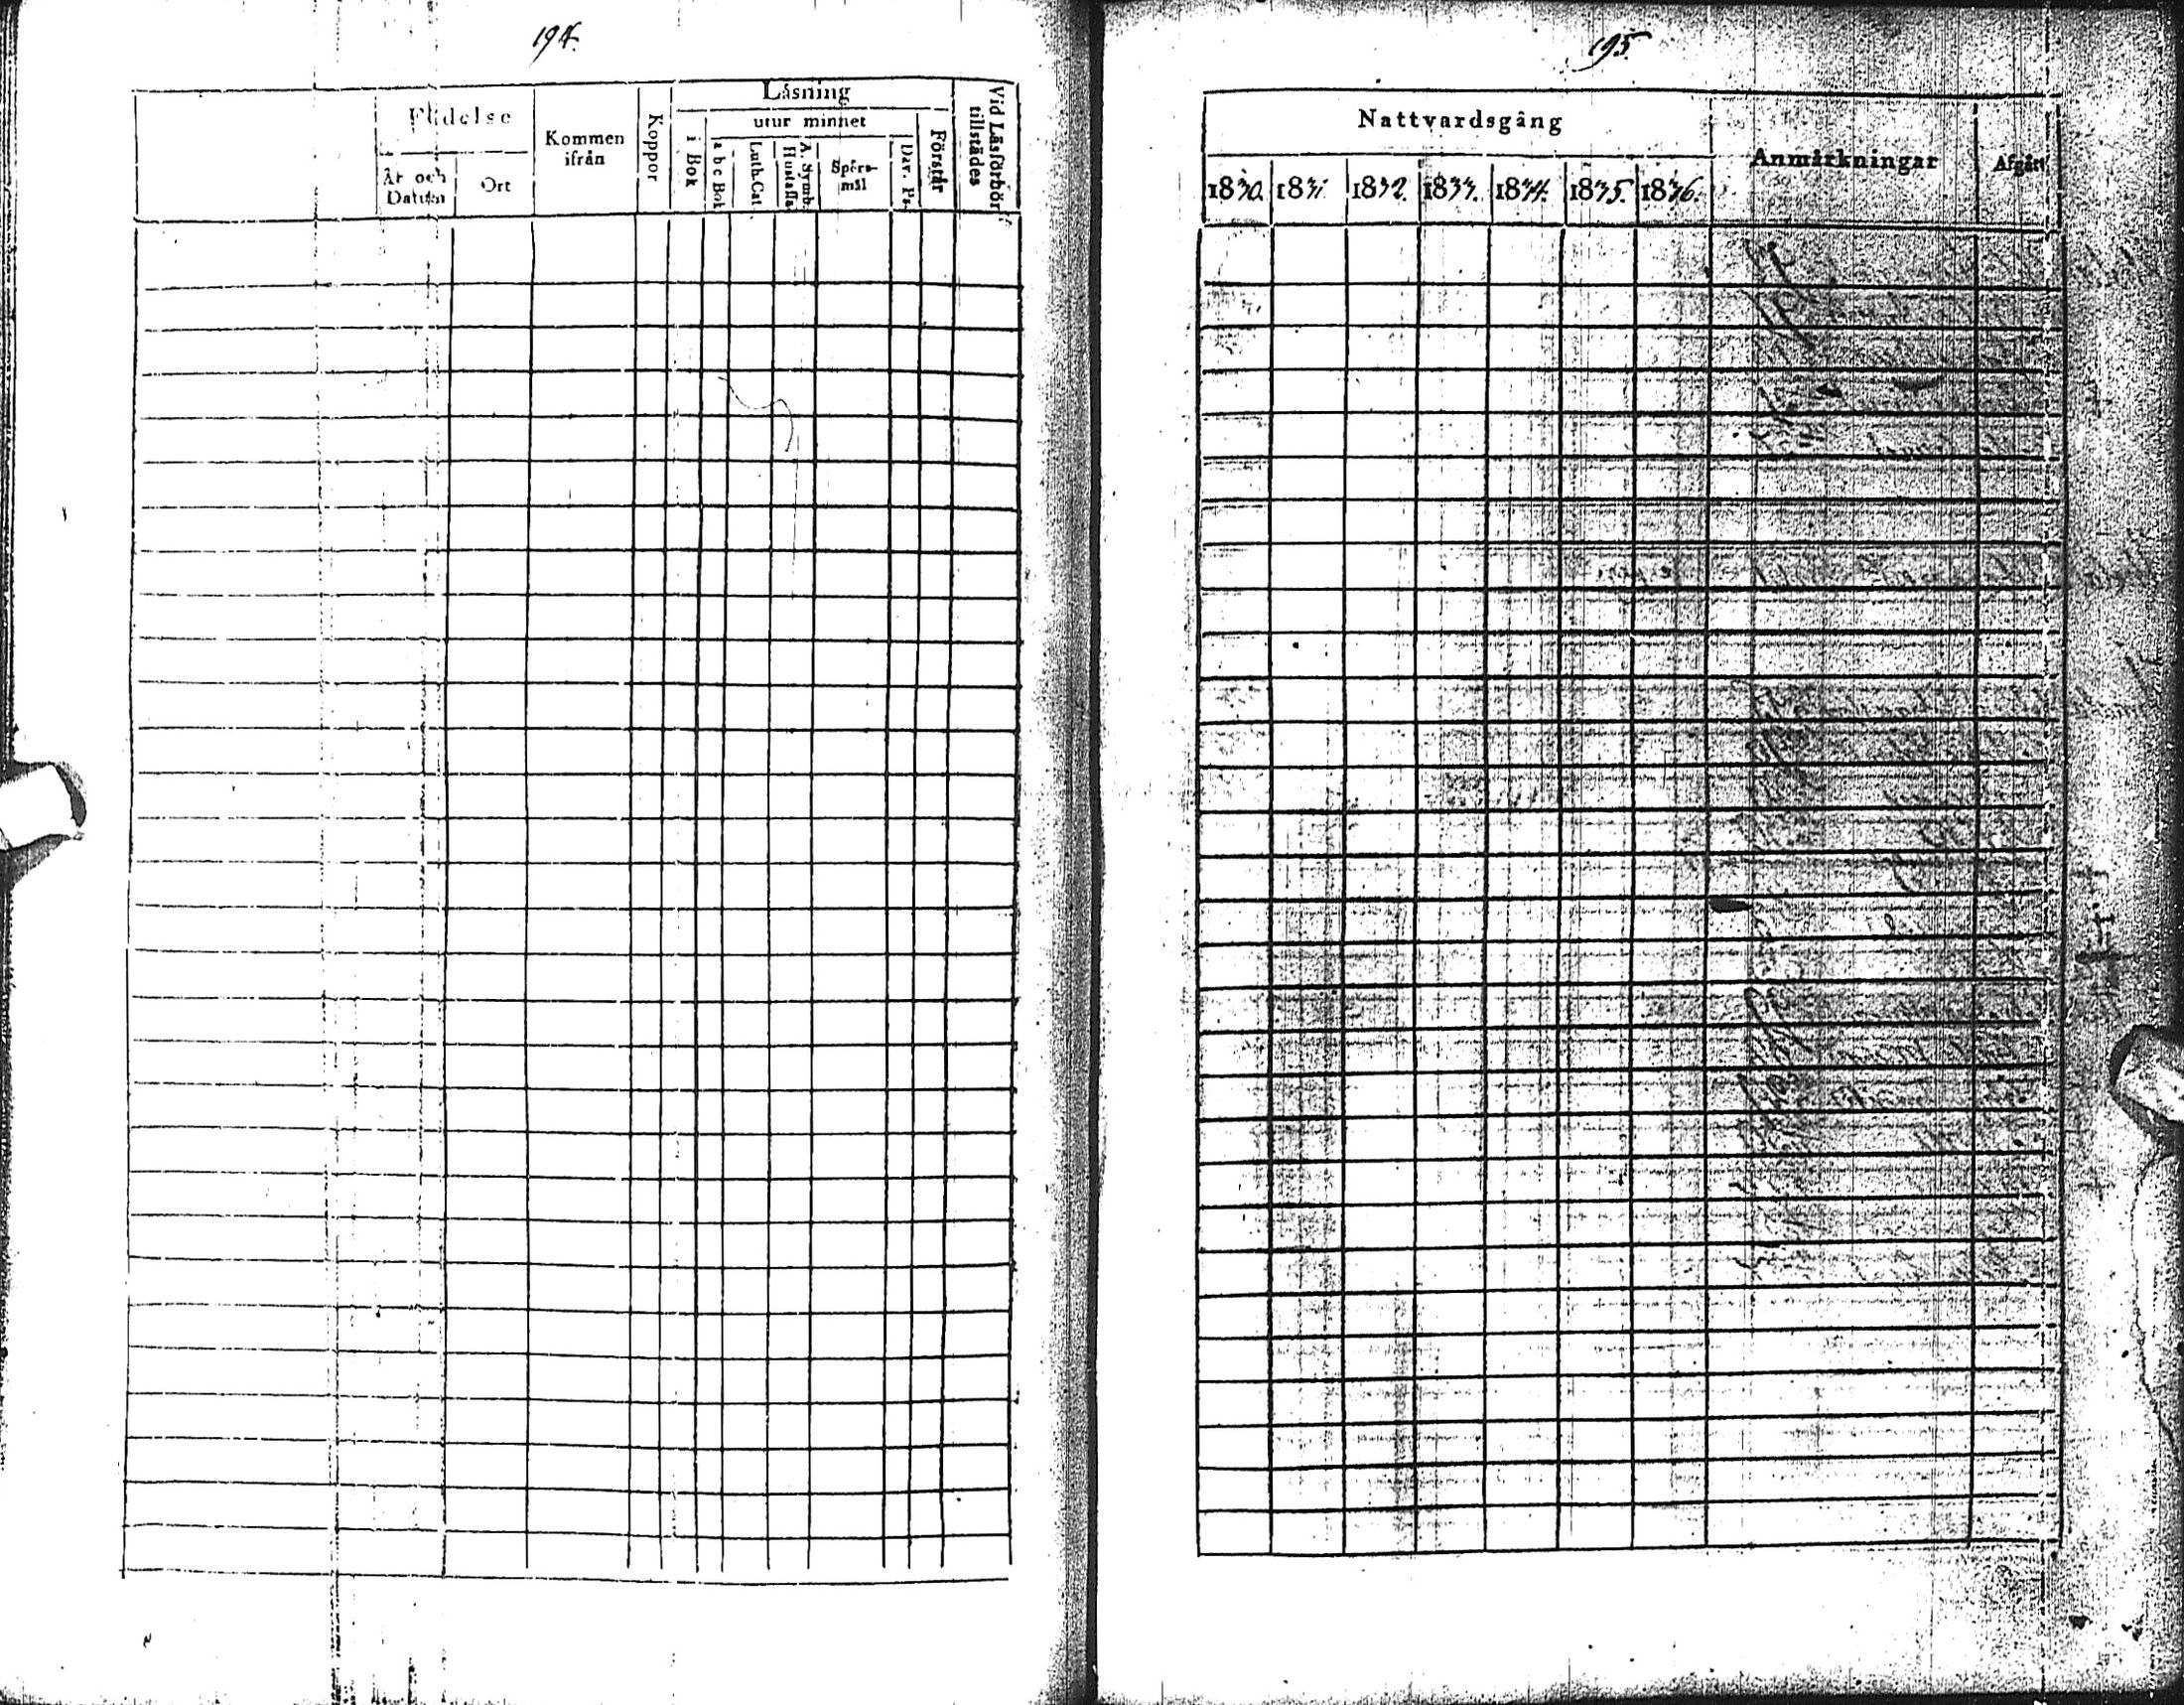 194.
Läsning
Födelse
utur minnet
Kommen
ifrån
Koppor
i Bok
a b c Bok
Luth. Cat.
A. Symb.
Hustafla
Spörs-
mål
Dav. Ps.
Förstår
Vid Läsförhör
tillstädes
År och
Datum
Ort
195.
Nattvardsgång
Anmärkningar
Afgått
1830. 1831. 1832. 1833. 1834. 1835. 1836.